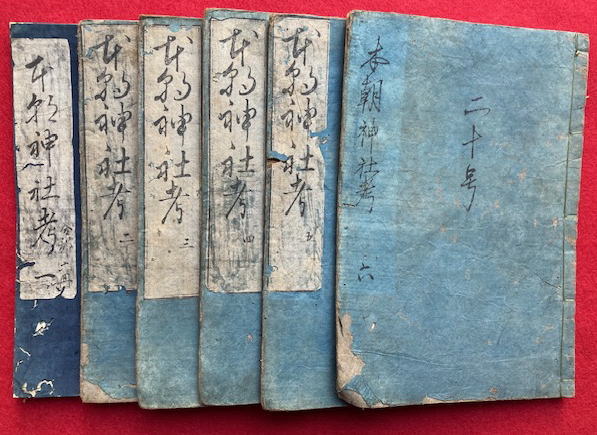 本朝神社考 一
本朝神社考 二
本朝神社考 三
本朝神社考 四
本朝神社考 五
本朝神社考 六
二十号